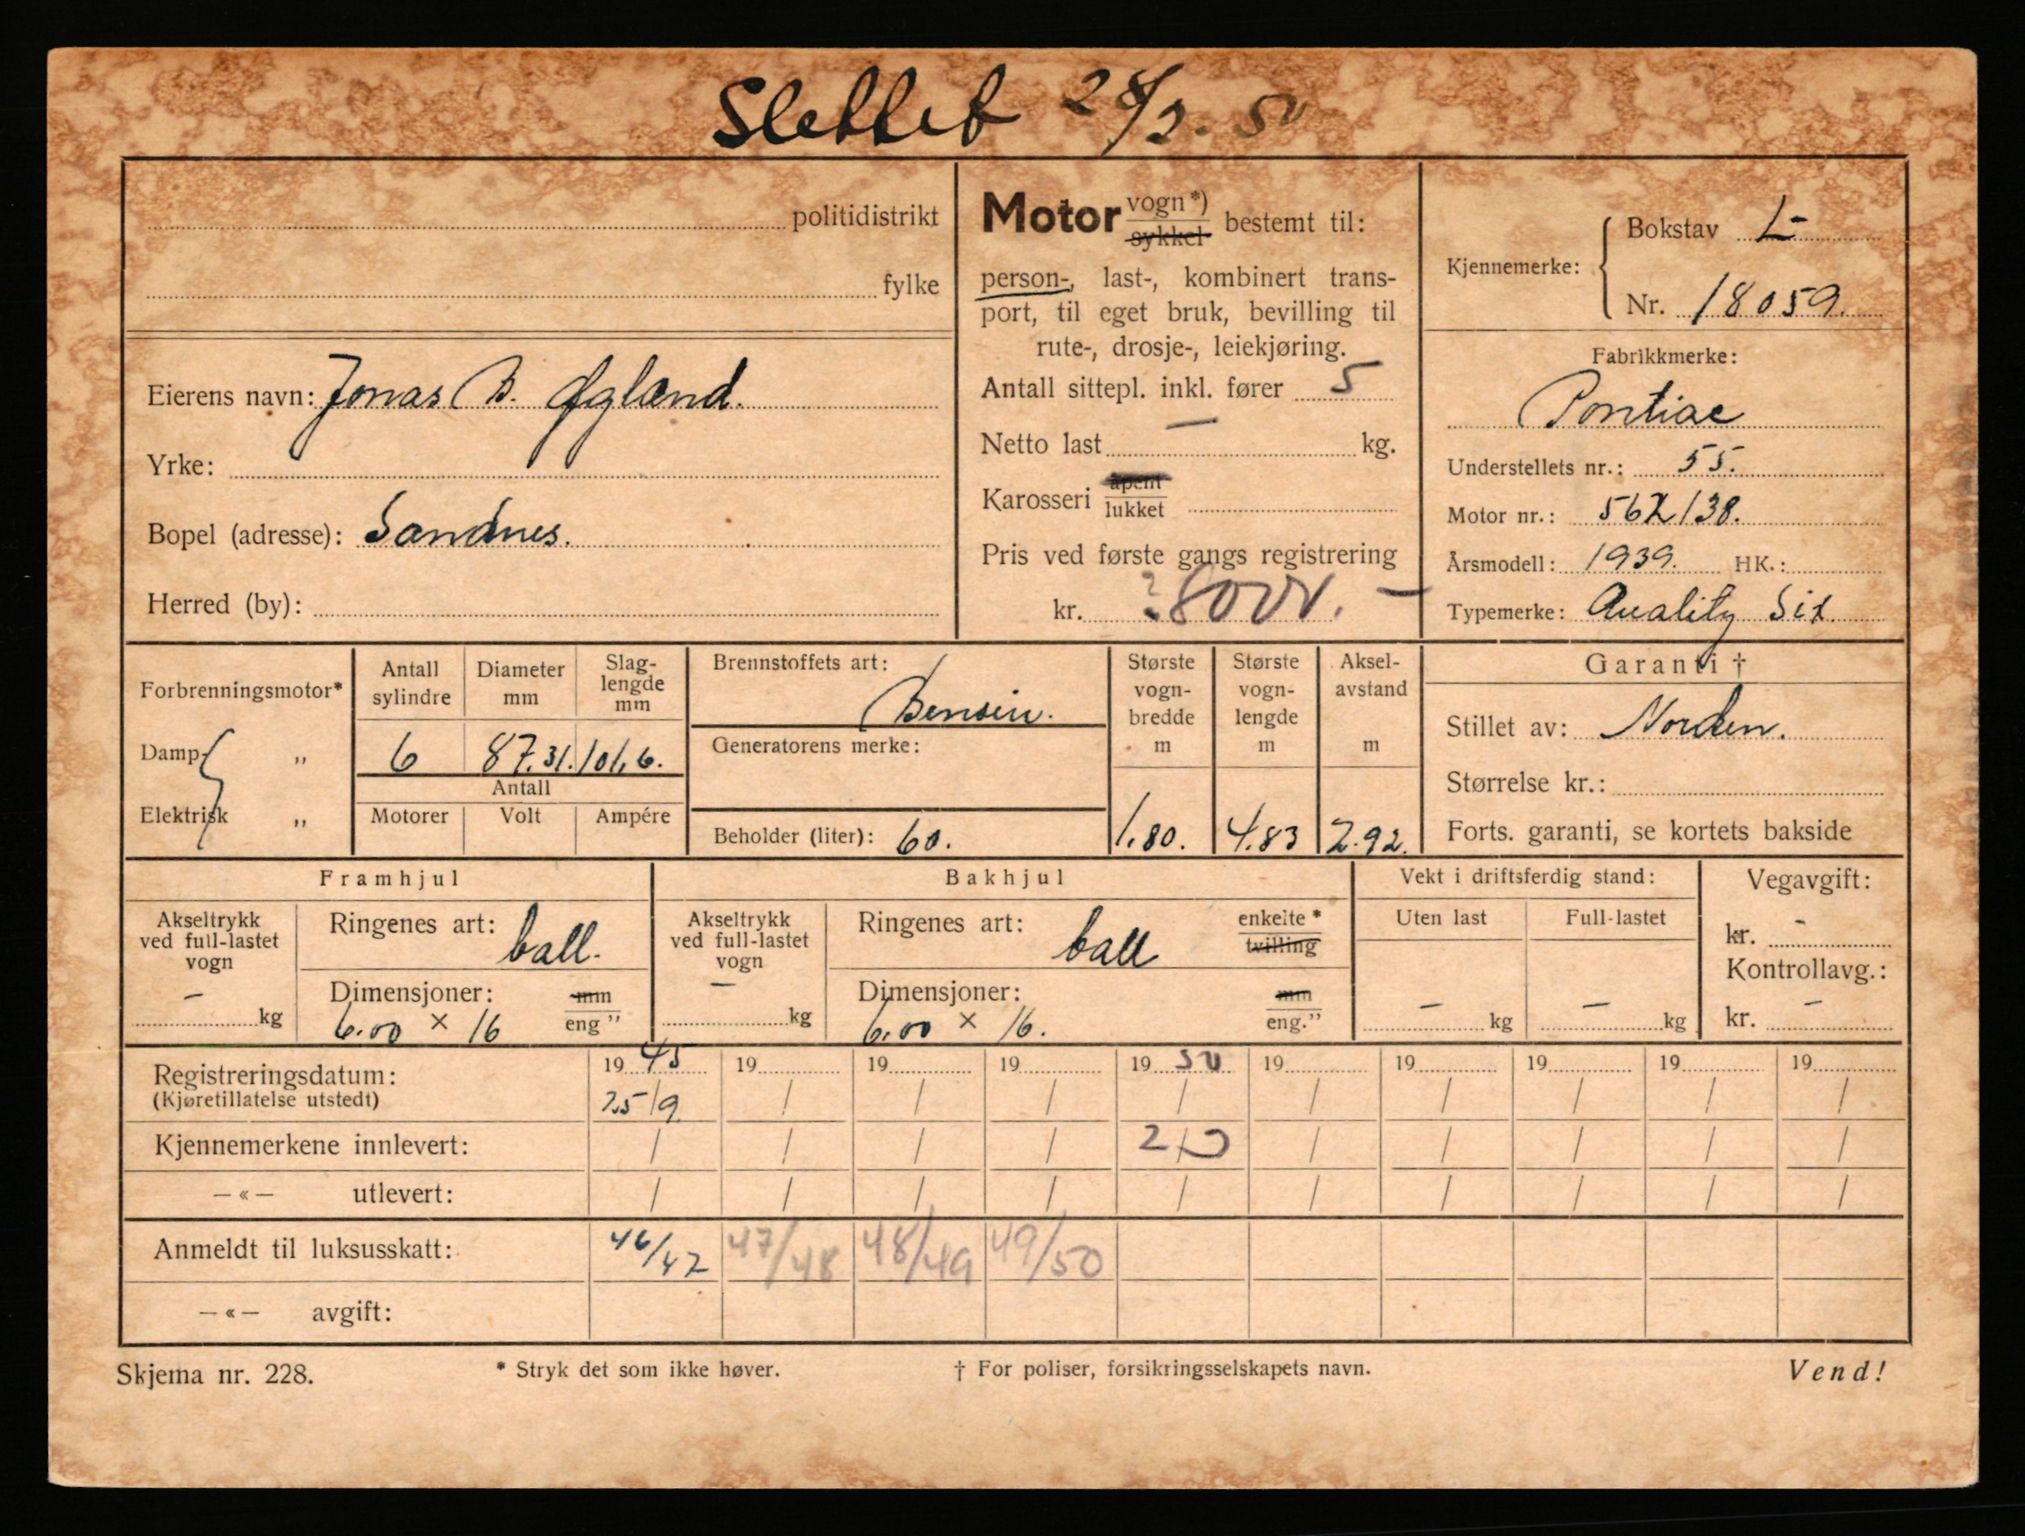 Slettet 28/3. 50
politidistrikt
fylke
Eierens navn: Jonas B. Øglænd.
Yrke:
Bopel (adresse): Sandnes.
Herred (by):
Motor vogn*) sykkel bestemt til:
person-, last-, kombinert trans-
port, til eget bruk, bevilling til
rute-, drosje-, leiekjøring.
Antall sittepl. inkl. fører 5
Netto last — kg.
Karosseri åpent lukket
Pris ved første gangs registrering
kr. ? 8000. —
Kjennemerke: Bokstav L-
Nr. 18059.
Fabrikkmerke:
Pontiac
Understellets nr.: 55.
Motor nr.: 562138.
Årsmodell: 1939. HK.:
Typemerke: Quality Six
Forbrenningsmotor*
Damp- „
Elektrisk „
Antall sylindre
Diameter mm
Slag-
lengde
mm
6 87.31. 101,6.
Antall
Motorer Volt Ampére
Brennstoffets art:
Bensin.
Generatorens merke:
Beholder (liter): 60.
Største vogn-bredde m
1.80.
Største vogn-lengde m
4.83
Aksel-avstand m
2.92.
Garanti †
Stillet av: Norden.
Størrelse kr.:
Forts. garanti, se kortets bakside
Framhjul
Akseltrykk
ved full-lastet
vogn
— kg
Ringenes art: ball.
Dimensjoner: mm
6.00 × 16 eng "
Bakhjul
Akseltrykk
ved full-lastet
vogn
— kg
Ringenes art: ball enkelte * tvilling
Dimensjoner: mm
6.00 × 16. eng."
Vekt i driftsferdig stand:
Uten last Full-lastet
— kg — kg
Vegavgift:
kr. —
Kontrollavg.:
kr. —
Registreringsdatum: 19 45 19 19 19 19 50 19 19 19 19 19
(Kjøretillatelse utstedt) 25/9 / / / / / / / / /
Kjennemerkene innlevert: / / / / / / / / /
—«— utlevert: / / / / / / / / / /
Anmeldt til luksusskatt: 46/47 47/48 48/49 49/50
—«— avgift:
Skjema nr. 228. * Stryk det som ikke høver. † For poliser, forsikringsselskapets navn. Vend!